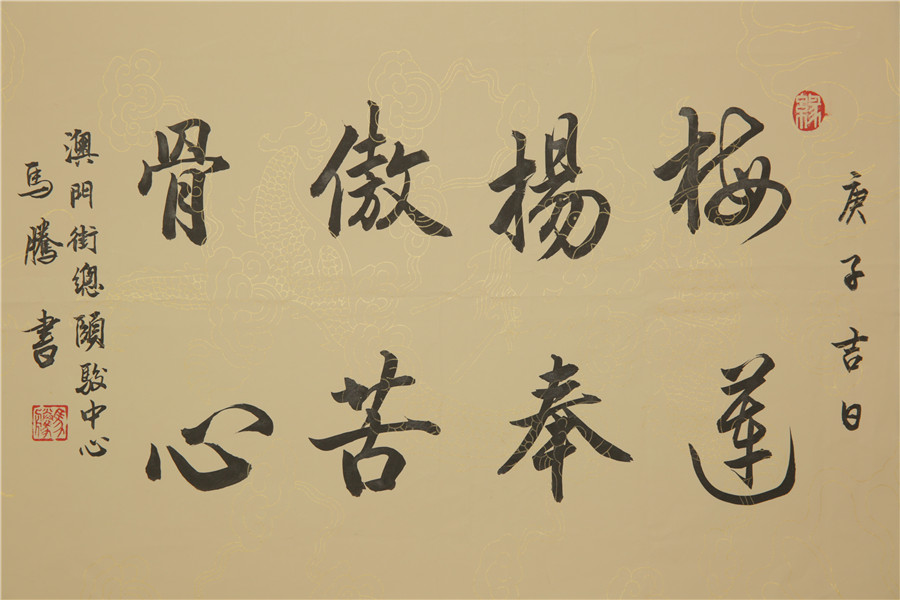 庚子吉日
梅揚傲骨
蓮奉苦心
澳門街總頤駿中心
馬騰書